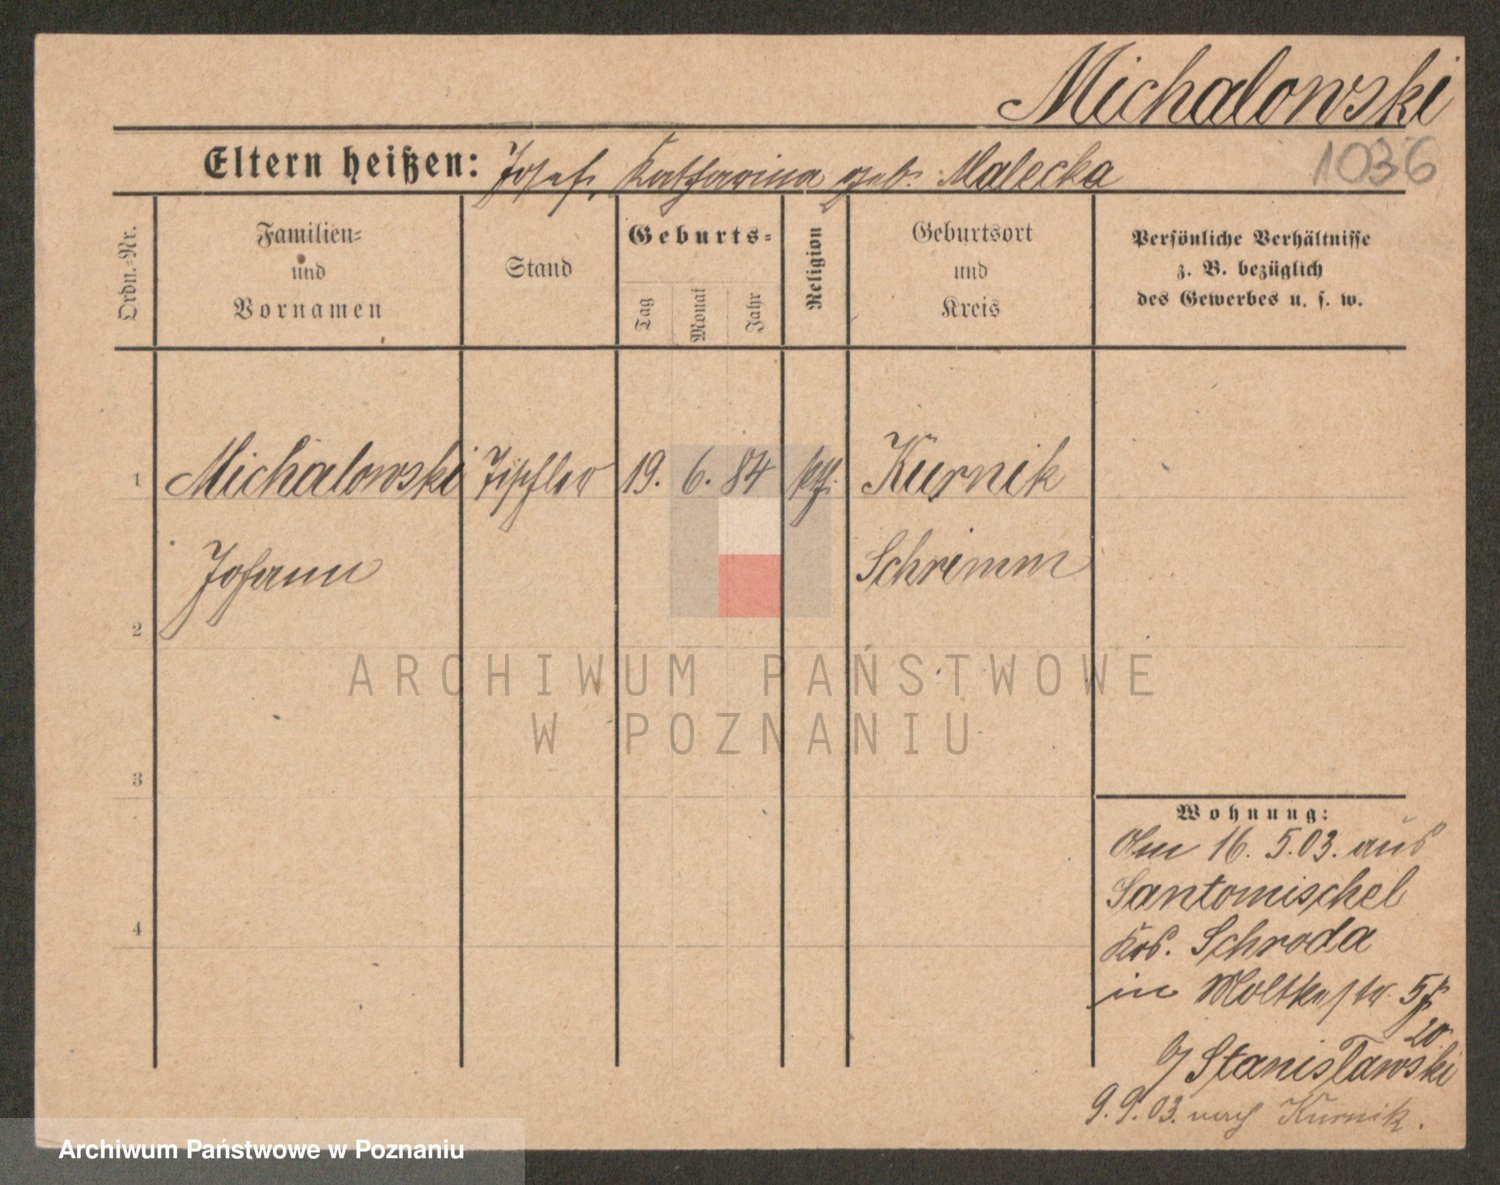 Michalowski
1036
Eltern heißen: Josef, Katharina geb. Malecka
Ordn.-Nr.
Familien-
und
Vornamen
Stand
Geburts-
Tag
Monat
Jahr
Religion
Geburtsort
und
Kreis
Persönliche Verhältnisse
z. B. bezüglich
des Gewerbes u. s. w.
1 Michalowski Tischler 19. 6. 84 kth. Kurnik
Johann Schrimm
2
ARCHIWUM PAŃSTWOWE
W POZNANIU
3
4
Wohnung:
Am 16. 5. 03. aus
Santomischel
Krs. Schroda
in Moltkestr.
b/ Stanisławski
9. 9. 03. nach Kurnik.
Archiwum Państwowe w Poznaniu